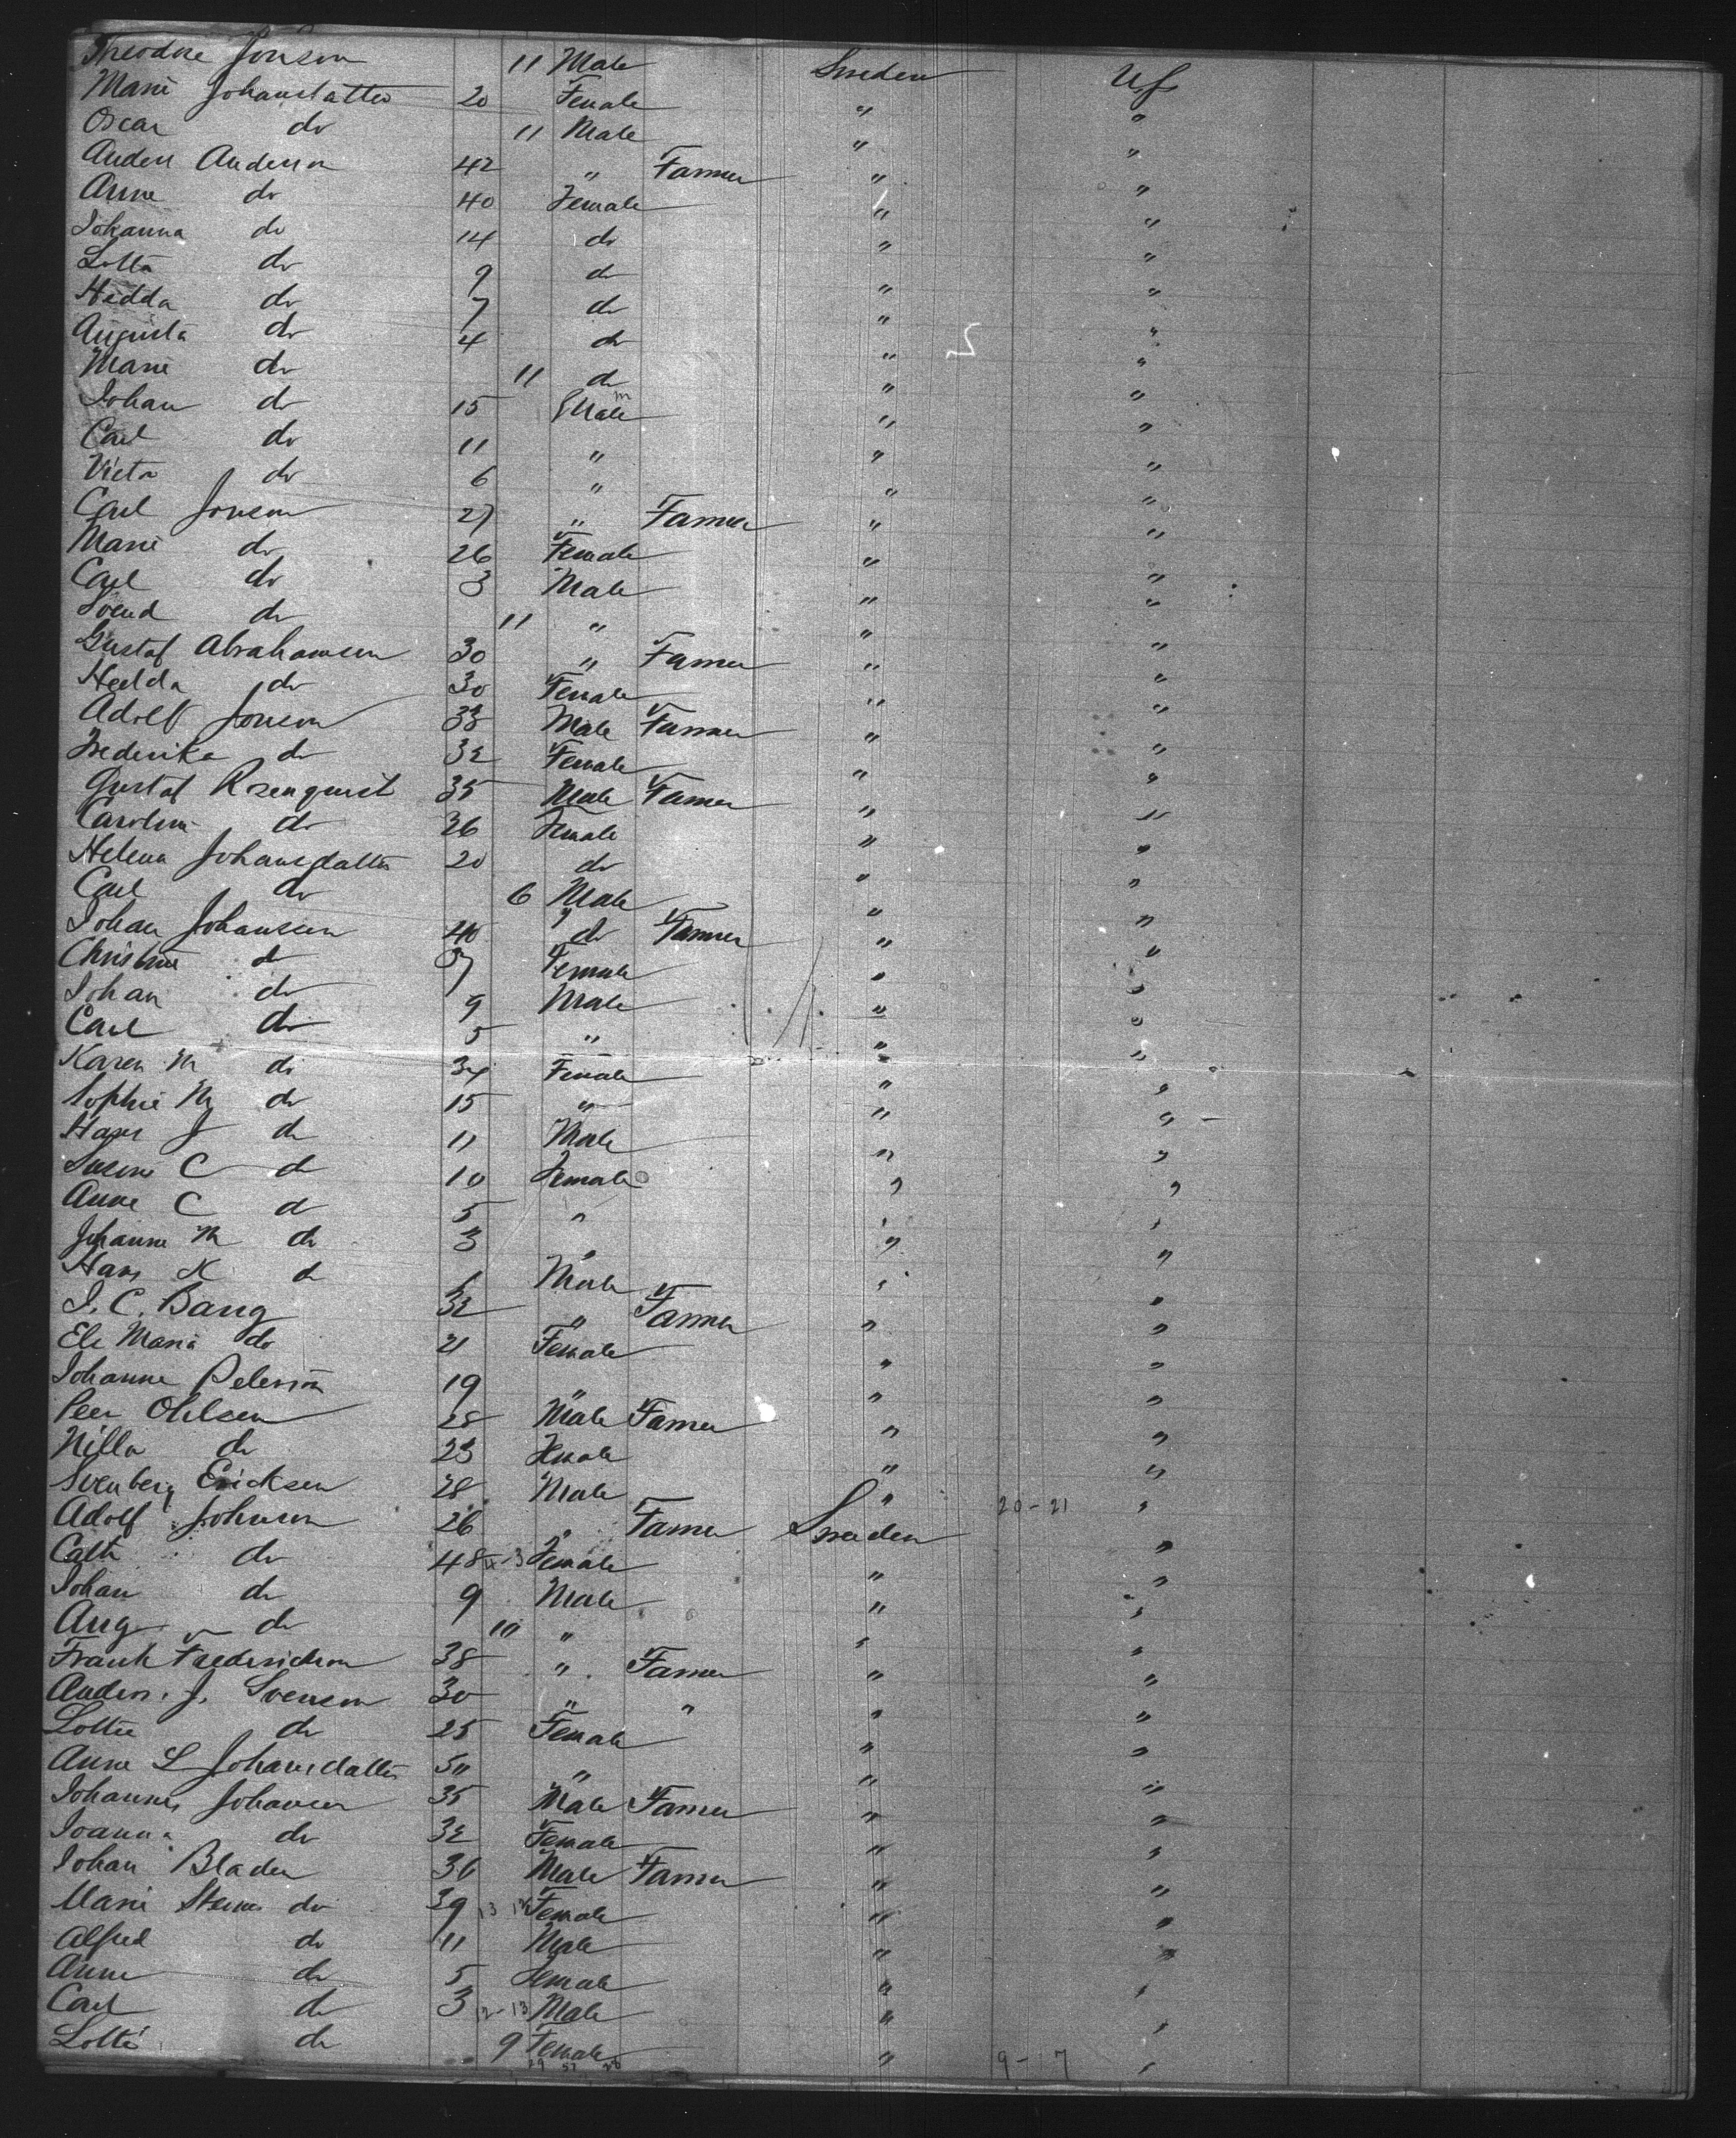 Theodore Jonson 11 Male Sweden U.S.
Marie Johansdatter 20 Female " "
Oscar do 11 Male " "
Anders Anderson 42 " Farmer " "
Anne do 40 Female " "
Johanna do 14 do " "
Lotta do 9 do " "
Hedda do 7 do " "
Augusta do 4 do " "
Marie do 11 do " "
Johan do 15 Male " "
Carl do 11 " " "
Victor do 6 " " "
Carl Jonson 27 " Farmer " "
Marie do 26 Female " "
Carl do 3 Male " "
Svend do 11 " " "
Gustaf Abrahamsen 30 " Farmer " "
Hedda do 30 Female " "
Adolf Jonson 33 Male Farmer " "
Frederika do 32 Female " "
Gustaf Rosenquist 35 Male Farmer " "
Caroline do 36 Female " "
Helena Johansdatter 20 do " "
Carl do 6 Male " "
Johan Johansen 40 do Farmer " "
Christine do 37 Female " "
Johan do 9 Male " "
Carl do 5 " " "
Karen M do 34 Female " "
Sophie M do 15 " " "
Hans J do 11 Male " "
C do 10 Female " "
Anne C do 5 " " "
Johanne M do 3 " " "
Hans K do 1 Male " "
J. C. Bang 32 " Farmer " "
Ele Maria do 21 Female " "
Johanne Peterson 19 " " "
Peer Ohlsen 28 Male Farmer " "
Nilla do 23 Female " "
Svenberg Ericksen 28 Male " 20-21 "
Adolf Johnson 26 " Farmer Sweden "
Cath do 48 Female " "
Johan do 9 Male " "
Aug do 10 " " "
Frank Frederickson 38 " Farmer " "
Anders. J. Svenson 30 " " " "
Lottie do 25 Female " "
Anne L Johansdatter 50 " " "
Johannes Johansen 35 Male Farmer " "
Joanna do 32 Female " "
Johan Bladen 36 Male Farmer " "
Marie do 39 Female " "
Alfred do 11 Male " "
Anne do 5 Female " "
Carl do 3 12-13 Male " "
Lotte do 9 Female " 9-17 "
29 57 28